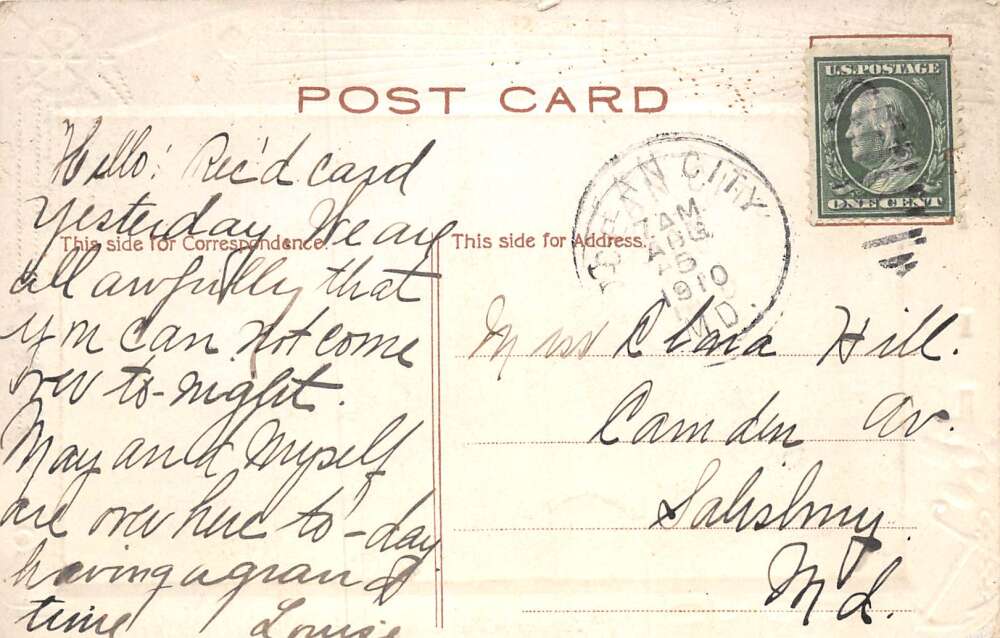 POST CARD
U.S. POSTAGE
ONE CENT
OCEAN CITY
7 AM
AUG
1910
MD.
This side for Correspondence.
This side for Address.
Hello! Rec'd card
yesterday. We are
all awfully that
you can not come
over to-night.
May and Myself
are over here to-day
having a grand
time Louise
Miss Hill.
Camden Av.
Salisbury
Md.